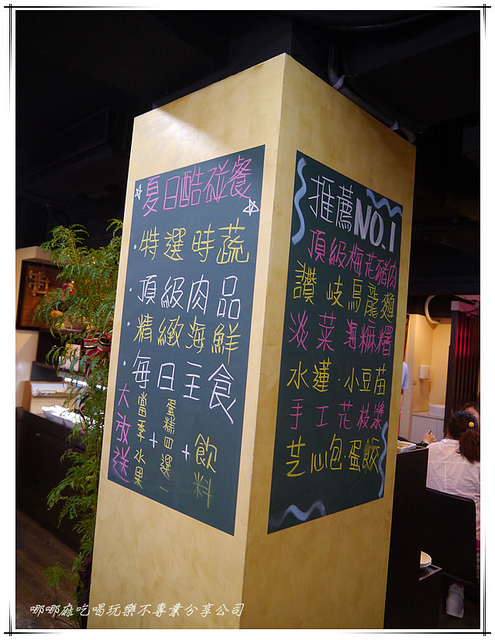 夏日酷碰餐
·特選時蔬
·頂級肉品
·精緻海鮮
·每日主食
大放送
當季水果
+
蛋糕四選一
+
飲料
推薦NO.1
頂級梅花豬肉
讚岐烏龍麵
淡菜 海麻糬
水蓮·小豆苗
手工花枝漿
芝心包·蛋餃
嘟嘟麻吃喝玩樂不專業分享公司